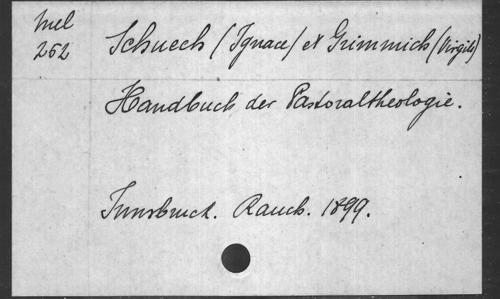 Mel
262
Schuech (Ignace) et Grimmich (Virgile)
Handbuch der Pastoraltheologie.
Innsbruck. Rauch. 1899.